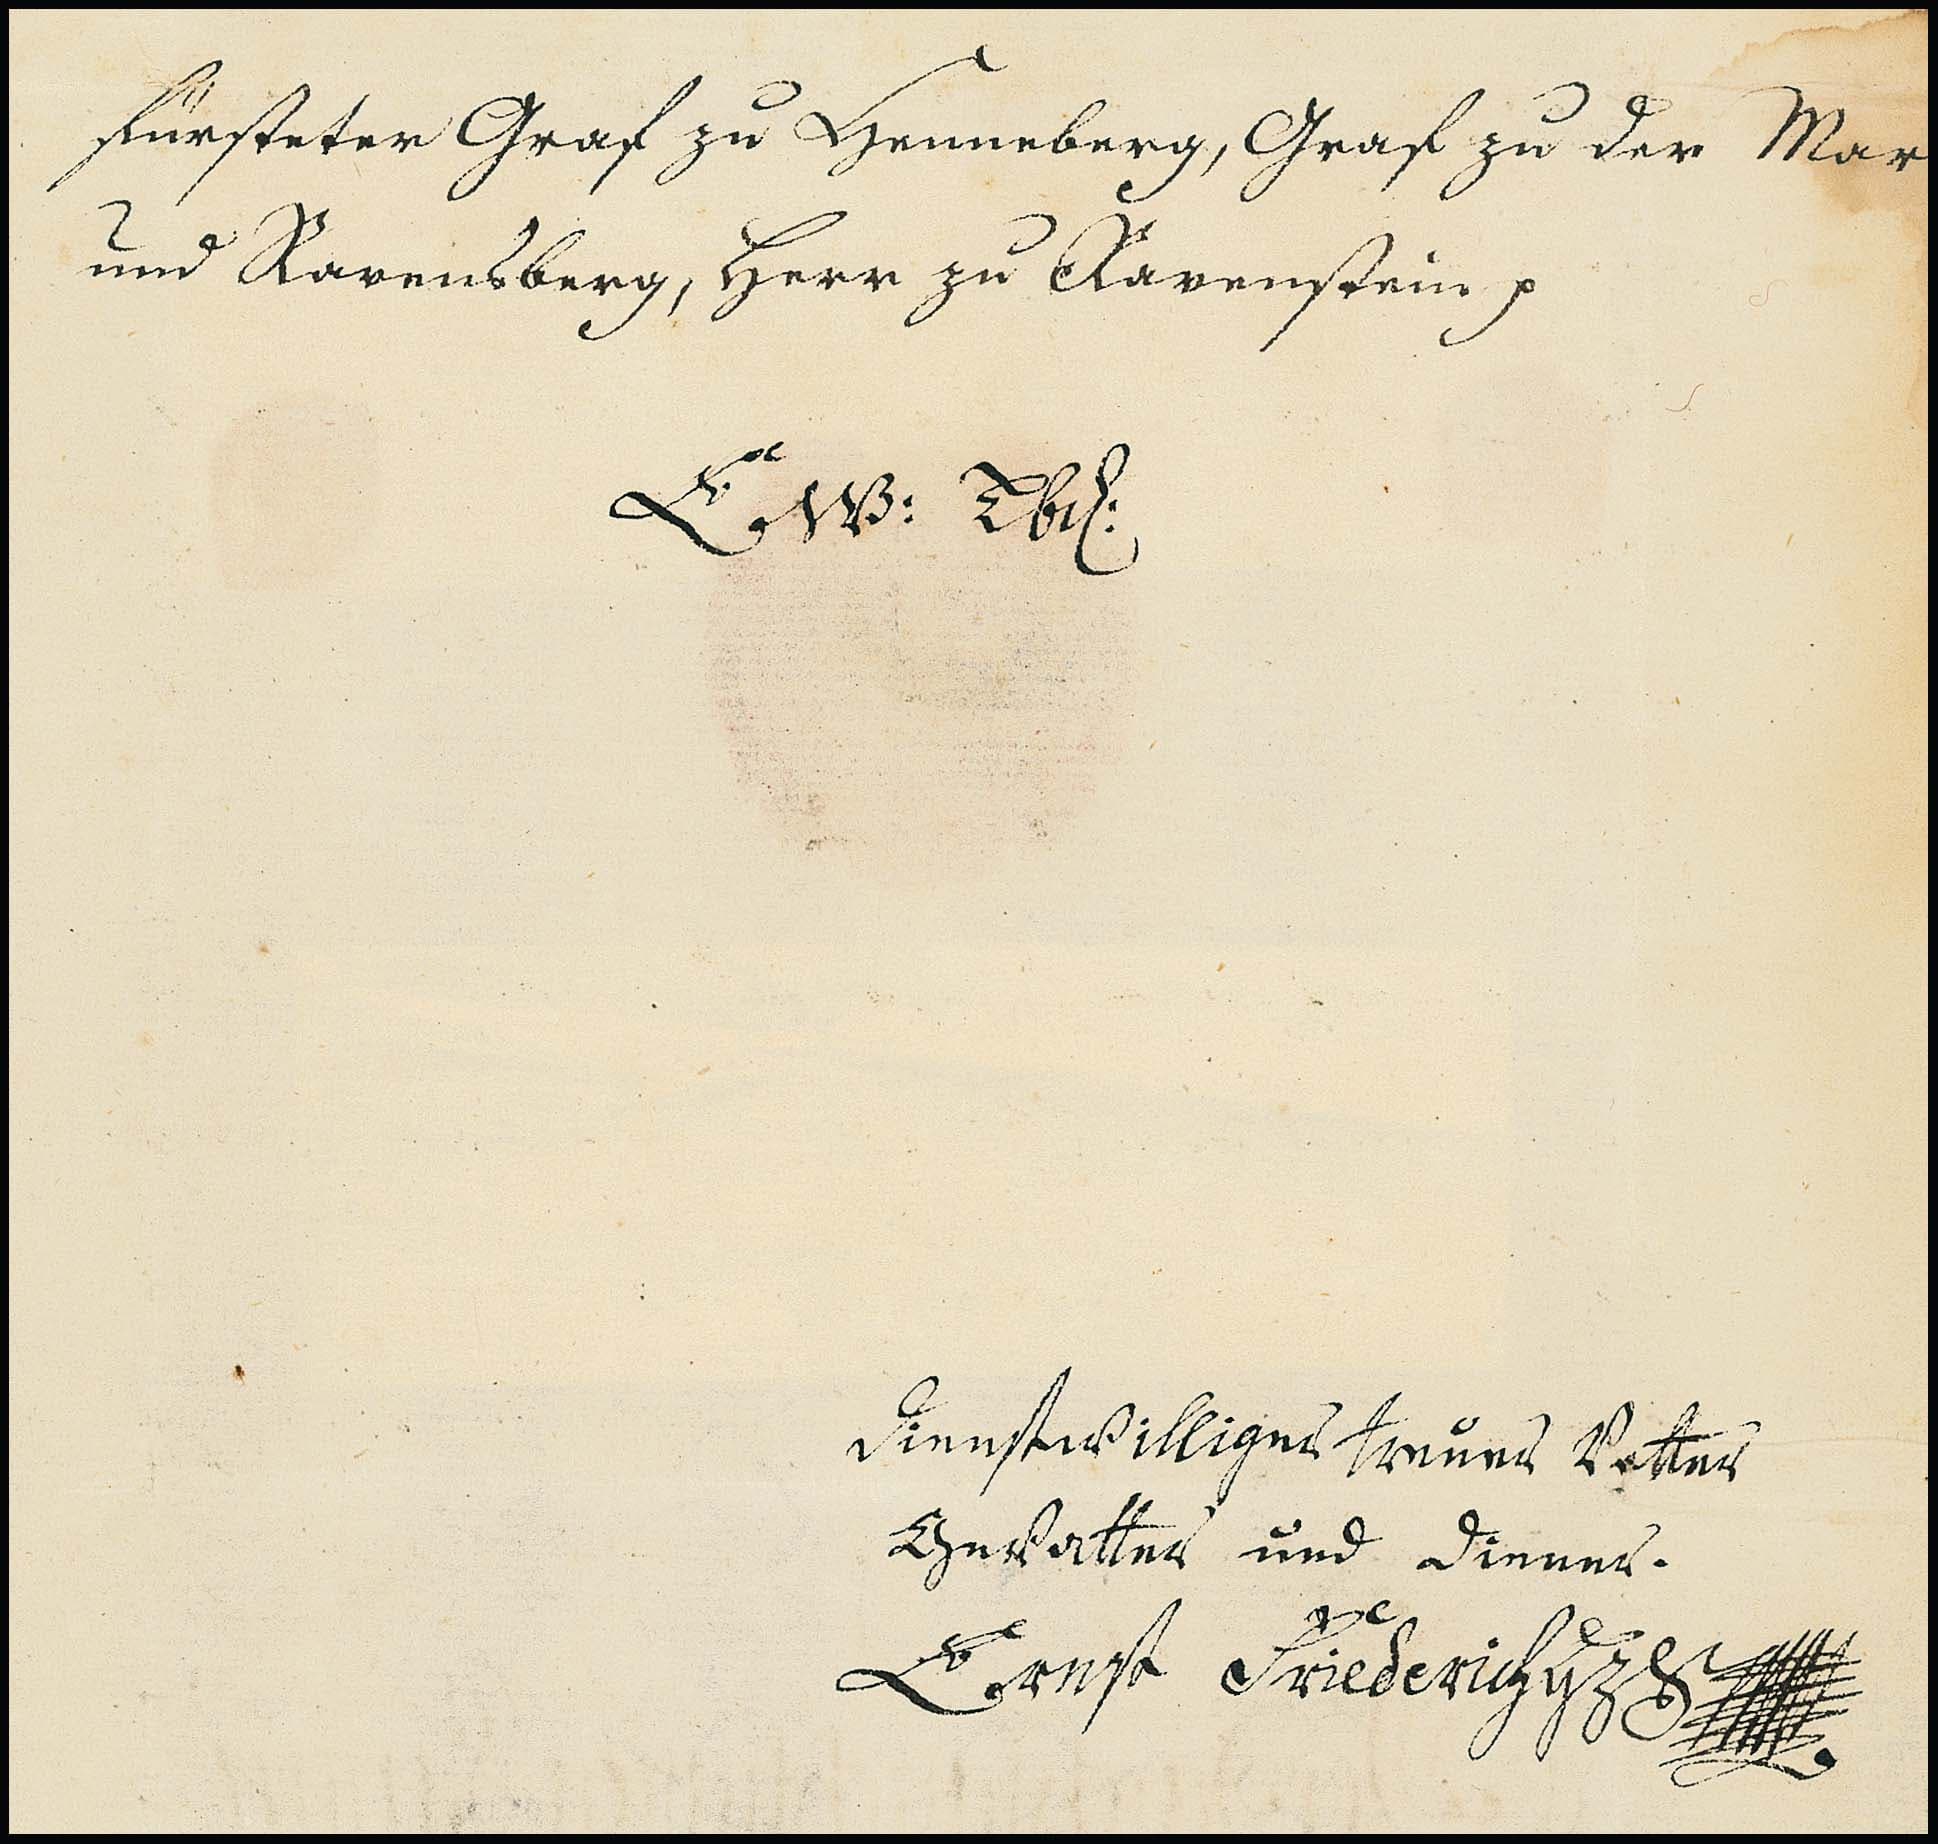 fürsteter Graf zu Henneberg, Graf zu der Mar
und Ravensberg, Herr zu Ravenstein p
Ew:
dienstwilliger treuer Vetter
Gevatter und diener.
Ernst Friederich HzS